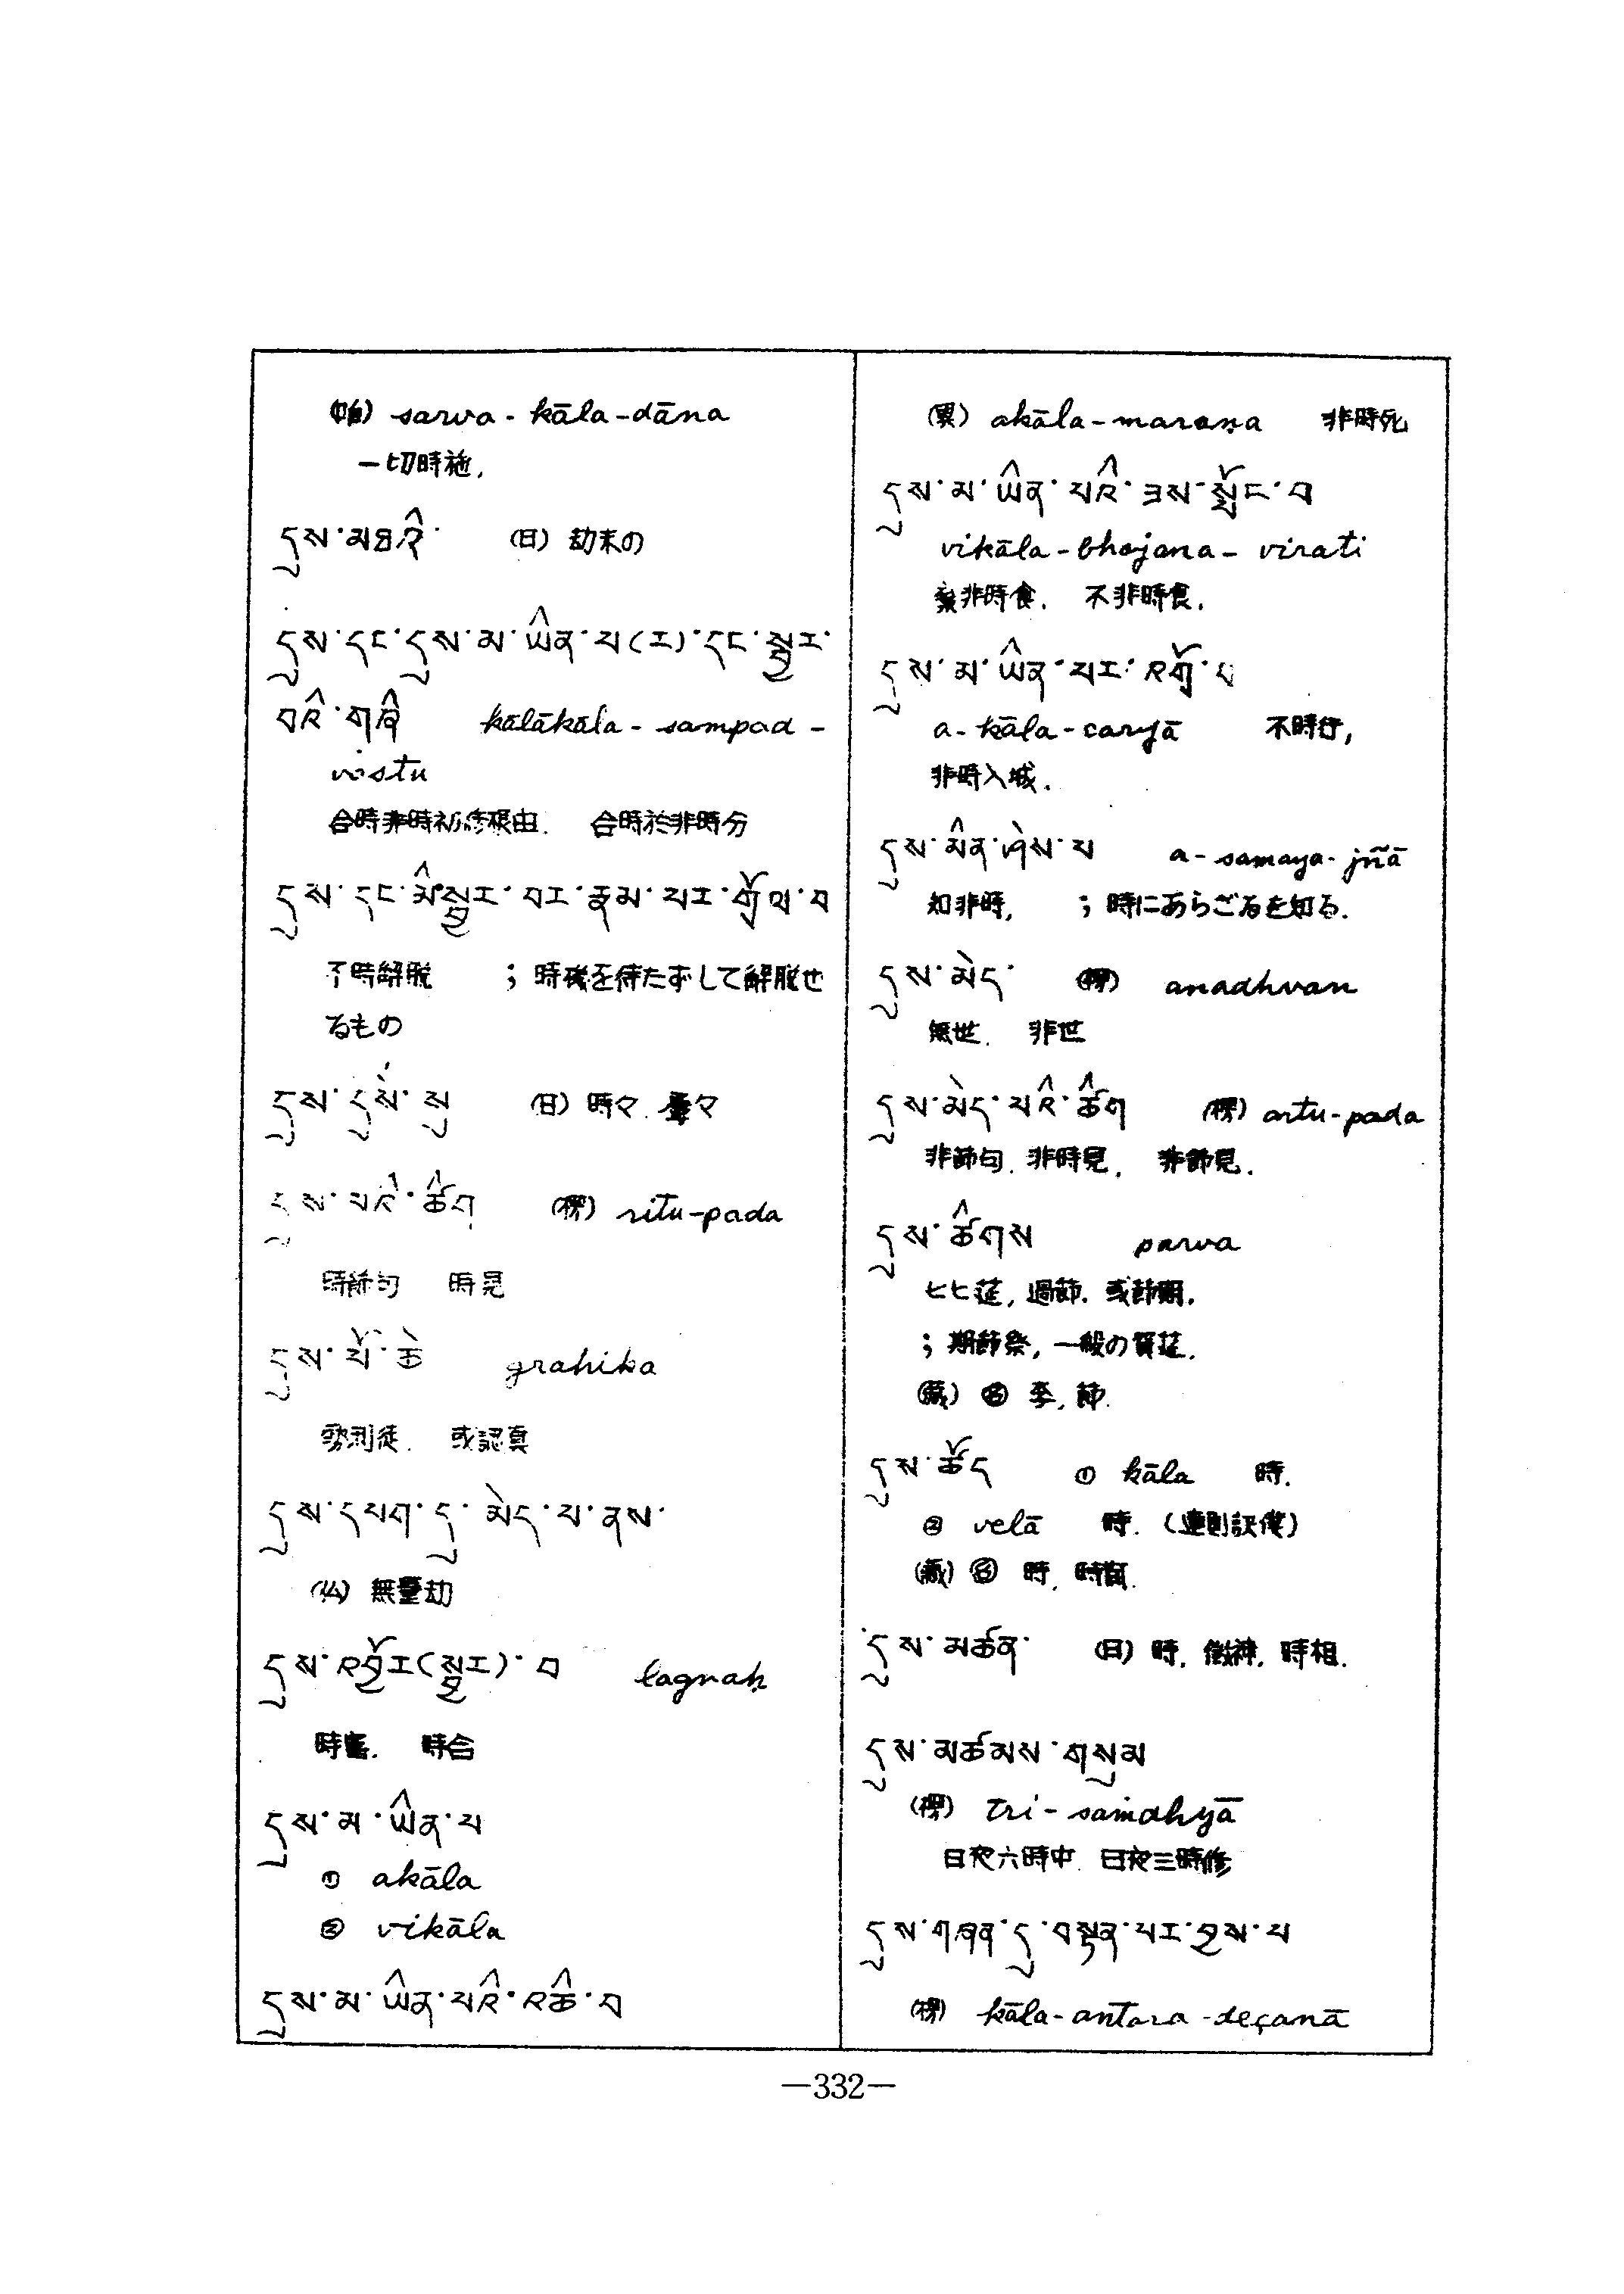 sarva-kāla-dāna
一切時施.
དུས་མཐའི་ (日) 劫末の
དུས་དང་དུས་མ་ཡིན་པ(ར)་དང་སྦྱར་
བའི་གཞི kālākāla-sampad-
vostu
合時非時初修根由. 合時於非時分
དུས་དང་མི་སྦྱར་བར་རྣམ་པར་གྲོལ་བ
不時解脱 ; 時機を待たずして解脱せ
るもの
དུས་དུས་སུ (日) 時々.
དུས་པའི་ཚིག (楞) ritu-pada
時節句 時見
དུས་པོ་ཆེ grahika
或認真
དུས་དཔག་ཏུ་མེད་པ་ནས་
(仏) 無量劫
དུས་འབྱོར(སྦྱར)་བ lagnaḥ
時合
དུས་མ་ཡིན་པ
① akāla
② vikāla
དུས་མ་ཡིན་པའི་འཆི་བ
akāla-maraṇa 非時死
དུས་མ་ཡིན་པའི་ཟས་སྤོང་བ
vikāla-bhojana-virati
棄非時食. 不非時食.
དུས་མ་ཡིན་པར་འགྲོ་བ
a-kāla-caryā 不時行,
非時入城.
དུས་མིན་ཤེས་པ a-samaya-jñā
知非時, ; 時にあらざるを知る.
དུས་མེད་ (楞) anadhvan
無世. 非世
དུས་མེད་པའི་ཚིག (楞) artu-pada
非節句. 非時見. 非節見.
དུས་ཚིགས parva
過節. 或節期.
; 期節祭, 一般の
(蔵) 名 季, 節.
དུས་ཚོད ① kāla 時.
② velā 時.
(蔵) 名 時,
དུས་མཚན་ (日) 時. 時相.
དུས་མཚམས་གསུམ
(楞) tri-saṁdhyā
日夜六時中. 日夜三時修
དུས་གཞན་དུ་བསྟན་པར་བྱས་པ
(楞) kāla-antara-deçanā
—332—